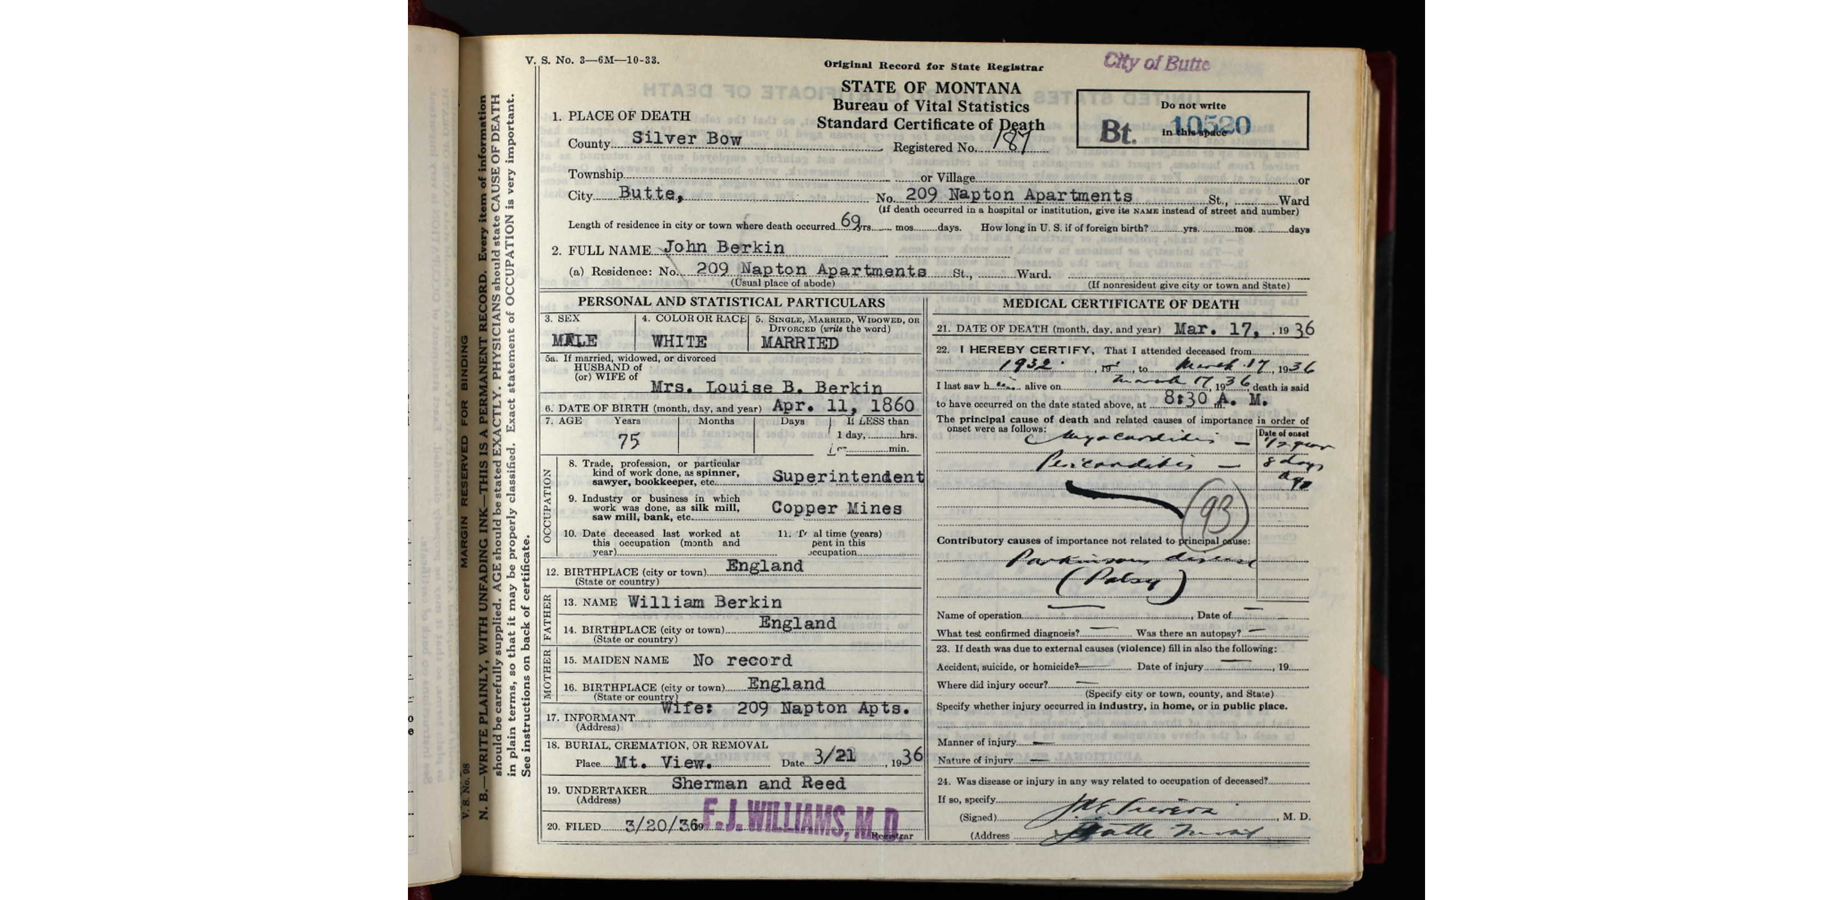 V. S. No. 3—6M—10-33.
Original Record for State Registrar
City of Butte
STATE OF MONTANA
Bureau of Vital Statistics
Standard Certificate of Death
Do not write
in this space
Bt. 10520
1. PLACE OF DEATH
County Silver Bow
Registered No. 187
Township or Village or
City Butte, No. 209 Napton Apartments St., Ward
(If death occurred in a hospital or institution, give its NAME instead of street and number)
Length of residence in city or town where death occurred 69 yrs. mos. days. How long in U. S. if of foreign birth? yrs. mos. days
2. FULL NAME John Berkin
(a) Residence: No. 209 Napton Apartments St., Ward.
(Usual place of abode) (If nonresident give city or town and State)
PERSONAL AND STATISTICAL PARTICULARS
3. SEX
MALE
4. COLOR OR RACE
WHITE
5. SINGLE, MARRIED, WIDOWED, OR
DIVORCED (write the word)
MARRIED
5a. If married, widowed, or divorced
HUSBAND of
(or) WIFE of
Mrs. Louise B. Berkin
6. DATE OF BIRTH (month, day, and year) Apr. 11, 1860
7. AGE Years Months Days If LESS than
75
1 day, hrs.
min.
OCCUPATION
8. Trade, profession, or particular
kind of work done, as spinner,
sawyer, bookkeeper, etc. Superintendent
9. Industry or business in which
work was done, as silk mill,
saw mill, bank, etc. Copper Mines
10. Date deceased last worked at
this occupation (month and
year)
11. al time (years)
pent in this
occupation
12. BIRTHPLACE (city or town) England
(State or country)
FATHER
13. NAME William Berkin
14. BIRTHPLACE (city or town) England
(State or country)
MOTHER
15. MAIDEN NAME No record
16. BIRTHPLACE (city or town) England
(State or country)
Wife: 209 Napton Apts.
17. INFORMANT
(Address)
18. BURIAL, CREMATION, OR REMOVAL
Place Mt. View. Date 3/21, 1936
19. UNDERTAKER Sherman and Reed
(Address)
20. FILED 3/20/36 F.J. WILLIAMS, M.D.
Registrar
MEDICAL CERTIFICATE OF DEATH
21. DATE OF DEATH (month, day, and year) Mar. 17, 1936
22. I HEREBY CERTIFY, That I attended deceased from
1932, 19 , to March 17, 1936
I last saw h alive on March 17, 1936, death is said
to have occurred on the date stated above, at 8:30 A. M.
The principal cause of death and related causes of importance in order of
onset were as follows:
Date of onset
Myocarditis —
Pericarditis — 8 days
ago
93
Contributory causes of importance not related to principal cause:
Parkinsons disease
(Palsy)
Name of operation — Date of —
What test confirmed diagnosis? — Was there an autopsy? —
23. If death was due to external causes (violence) fill in also the following:
Accident, suicide, or homicide? — Date of injury —, 19
Where did injury occur? —
(Specify city or town, county, and State)
Specify whether injury occurred in industry, in home, or in public place.
Manner of injury —
Nature of injury —
24. Was disease or injury in any way related to occupation of deceased?
If so, specify
(Signed) , M. D.
(Address Butte Mont
V. S. No. 98
MARGIN RESERVED FOR BINDING
N. B.—WRITE PLAINLY, WITH UNFADING INK—THIS IS A PERMANENT RECORD. Every item of information
should be carefully supplied. AGE should be stated EXACTLY. PHYSICIANS should state CAUSE OF DEATH
in plain terms, so that it may be properly classified. Exact statement of OCCUPATION is very important.
See instructions on back of certificate.